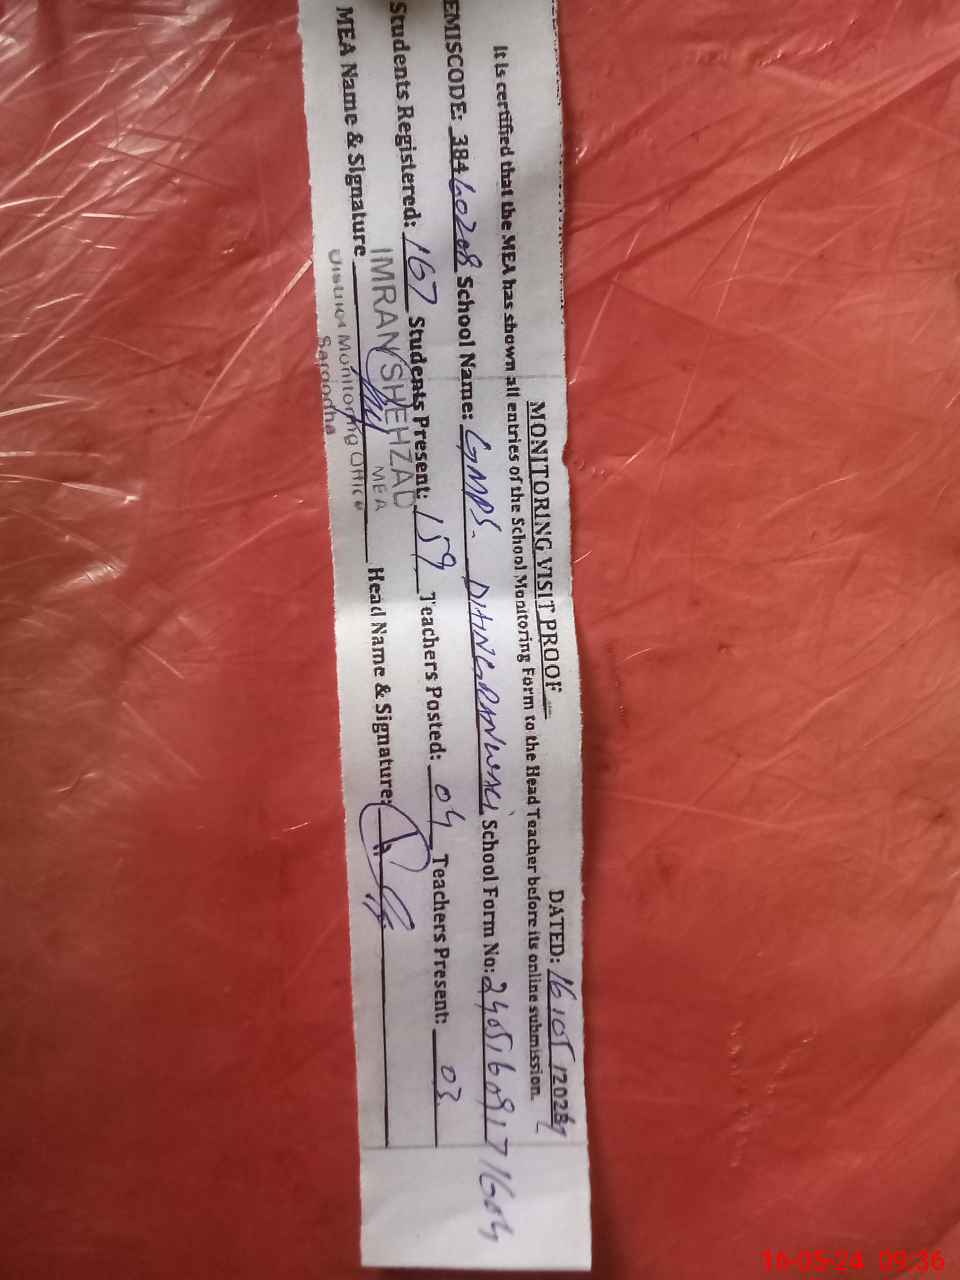 MONITORING VISIT PROOF
DATED: 16/05/2024
It is certified that the MEA has shown all entries of the School Monitoring Form to the Head Teacher before its online submission.
EMISCODE: 38460208 School Name: GMPS. School Form No: 2405160917 1604
Students Registered: 167 Students Present: 159 Teachers Posted: 04 Teachers Present: 03
MEA Name & Signature Head Name & Signature:
IMRAN SHEHZAD
MEA
District Monitoring Office
Sargodha
16-05-24 09:36